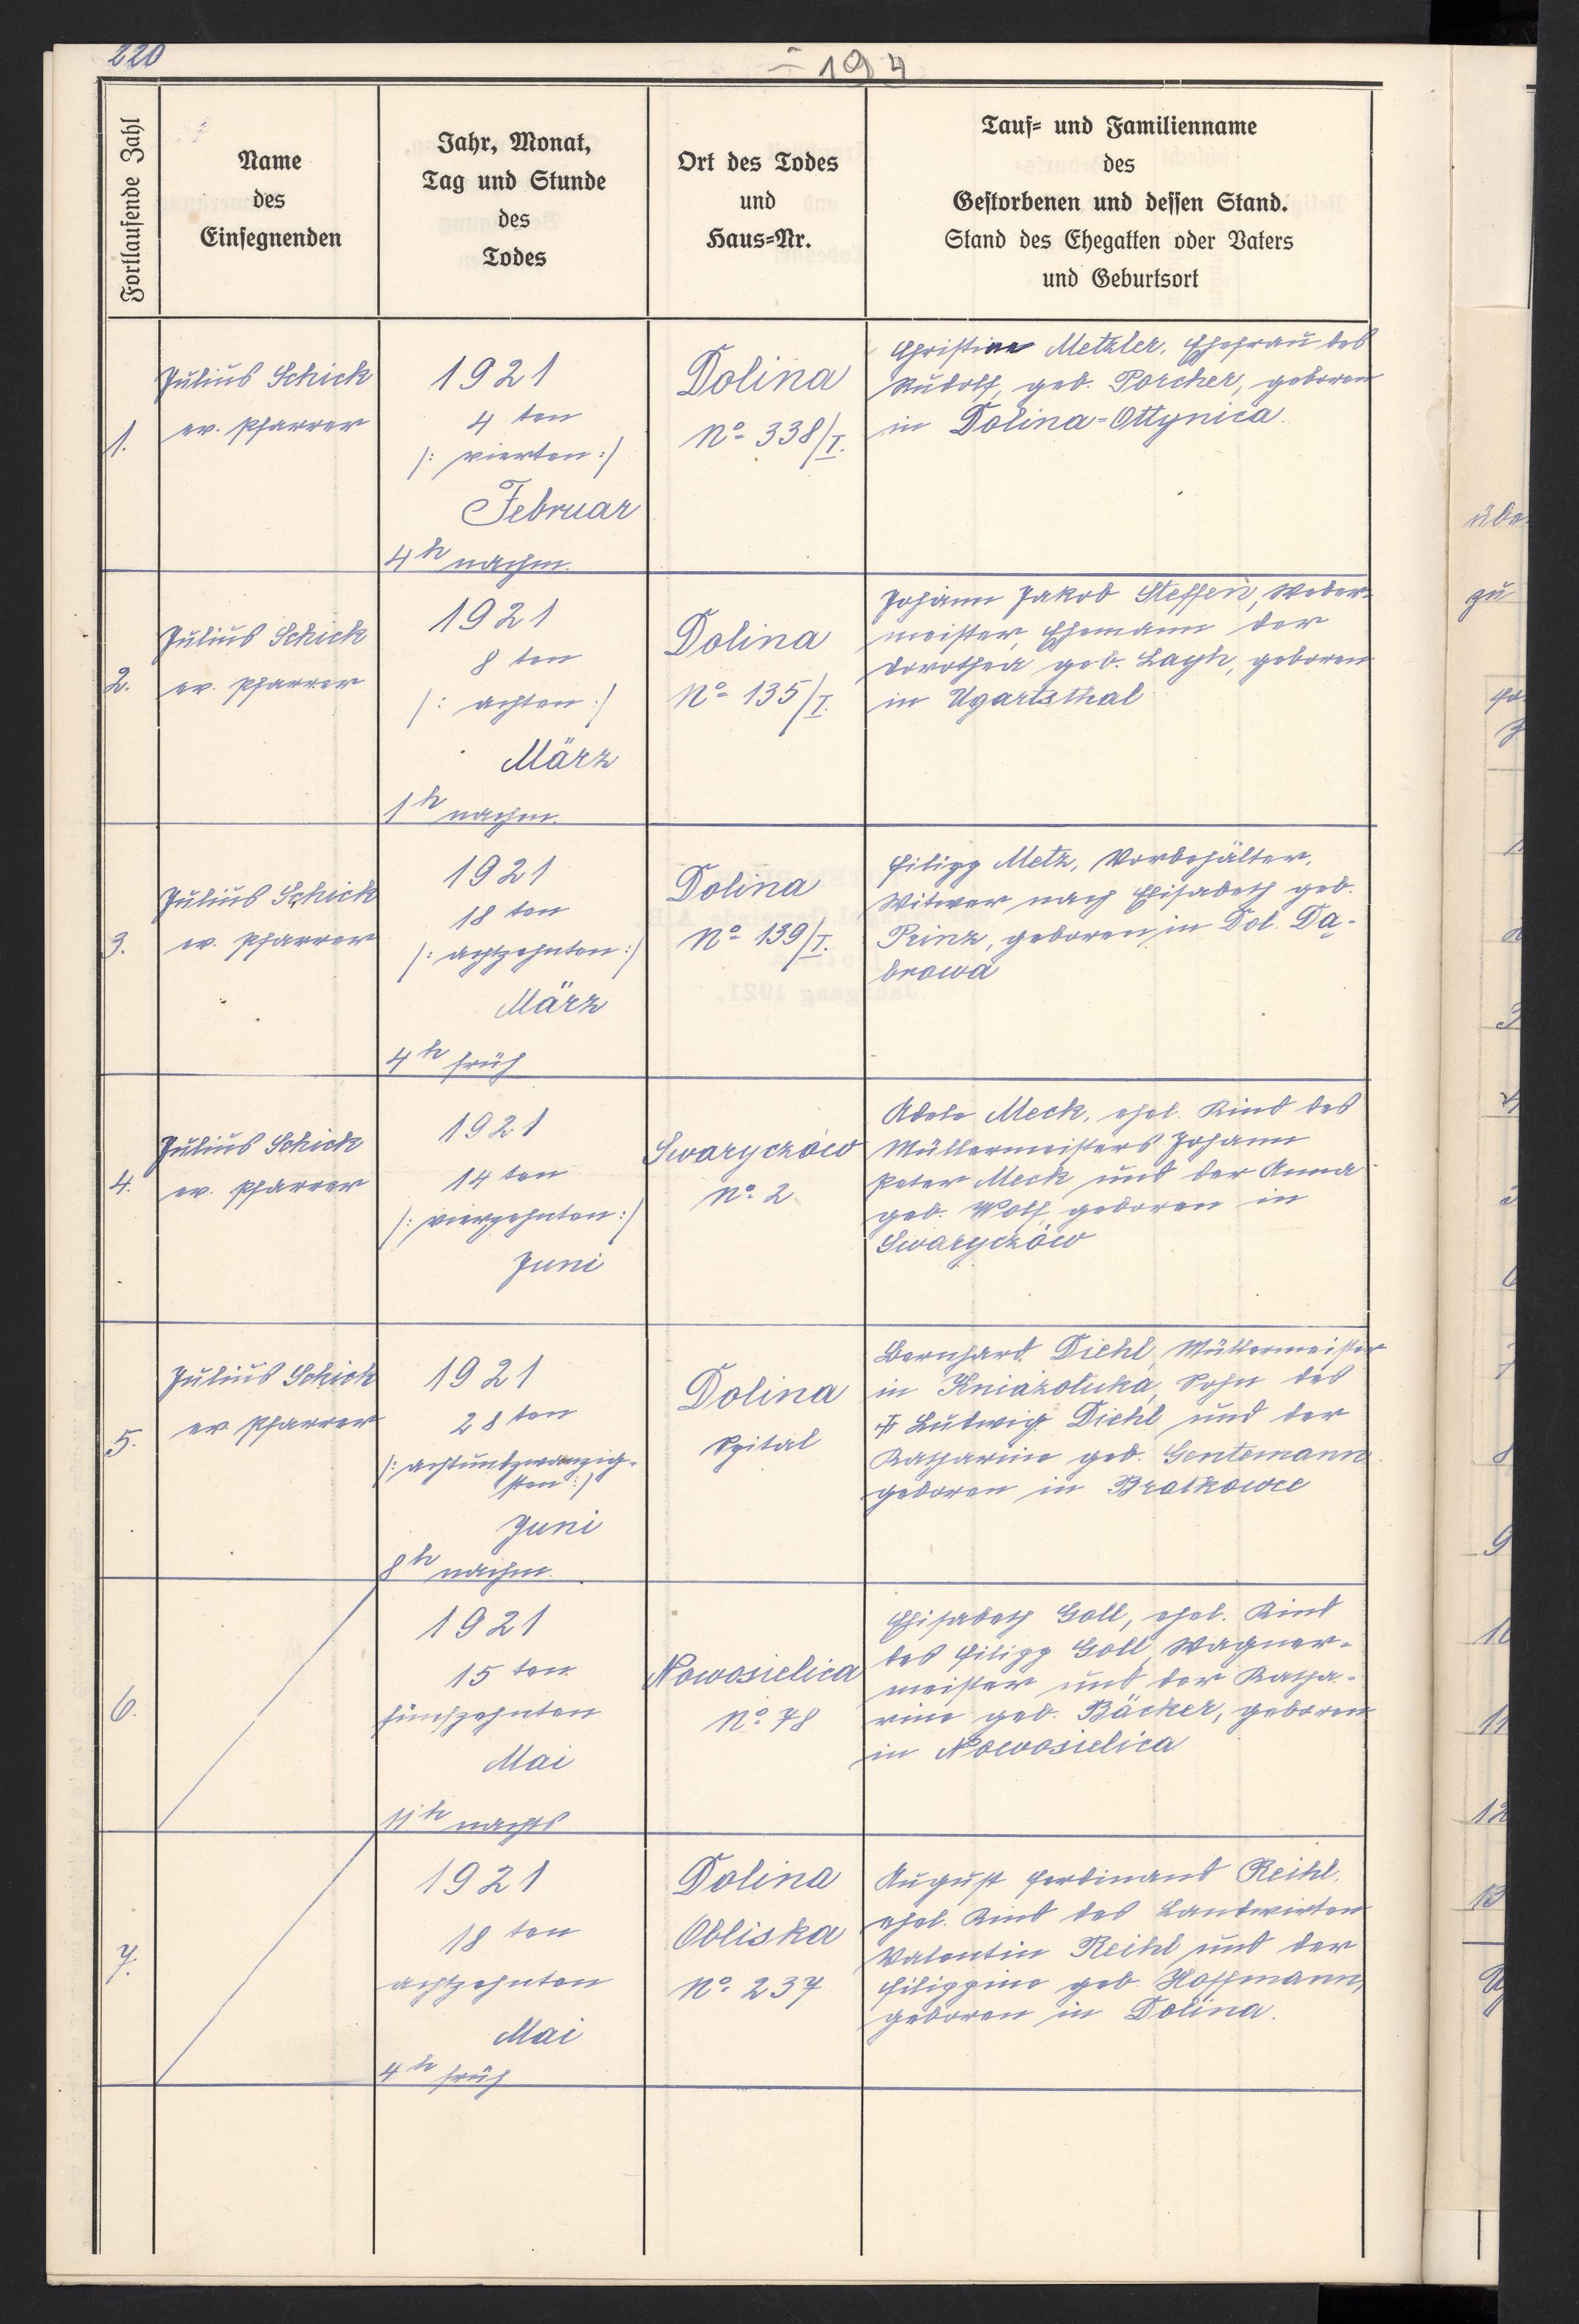 220
- 194
Fortlaufende Zahl
Name
des
Einsegnenden
Jahr, Monat,
Tag und Stunde
des
Todes
Ort des Todes
und
Haus=Nr.
Tauf= und Familienname
des
Gestorbenen und dessen Stand.
Stand des Ehegatten oder Vaters
und Geburtsort
1.
Julius Schick
ev. Pfarrer
1921
4 ten
/: vierten :/
Februar
4h nachm.
Dolina
No 338/I.
Christine Metzler, Ehefrau des
Rudolf, geb. Porcher, geboren
in Dolina=Ottynica.
2.
Julius Schick
ev. Pfarrer
1921
8 ten
/: achten :/
März
1h nachm.
Dolina
No 135/I.
Johann Jakob Steffen, Weber-
meister, Ehemann der
Dorothea geb. Layh, geboren
in Ugartsthal
3.
Julius Schick
ev. Pfarrer
1921
18 ten
/: achtzehnten :/
März
4h früh
Dolina
No 139/I.
Filipp Metz, Vorbehälter,
Witwer nach Elisabeth geb.
Prinz, geboren in Dol. Dą-
browa
4.
Julius Schick
ev. Pfarrer
1921
14 ten
/: vierzehnten :/
Juni
Swaryczów
No 2
Adele Meck, ehel. Kind des
Müllermeisters Johann
Peter Meck und der Anna
geb. Wolf, geboren in
Swaryczów
5.
Julius Schick
ev. Pfarrer
1921
28 ten
/: achtundzwanzig-
sten :/
Juni
8h nachm.
Dolina
Spital
Bernhard Diehl, Müllermeister
in Kniazołuka, Sohn des
Ludwig Diehl und der
Katharine geb. Gentemann
geboren in Bratkowce
6.
1921
15 ten
fünfzehnten
Mai
11h nachts
Nowosielica
No 78
Elisabeth Goll, ehel. Kind
des Filipp Goll, Wagner-
meister und der Katha-
rine geb. Bäcker, geboren
in Nowosielica
7.
1921
18 ten
achtzehnten
Mai
4h früh
Dolina
Obliska
No 237
August Ferdinand Reihl,
ehel. Kind des Landwirten
Valentin Reihl und der
Filippine geb. Hoffmann,
geboren in Dolina.